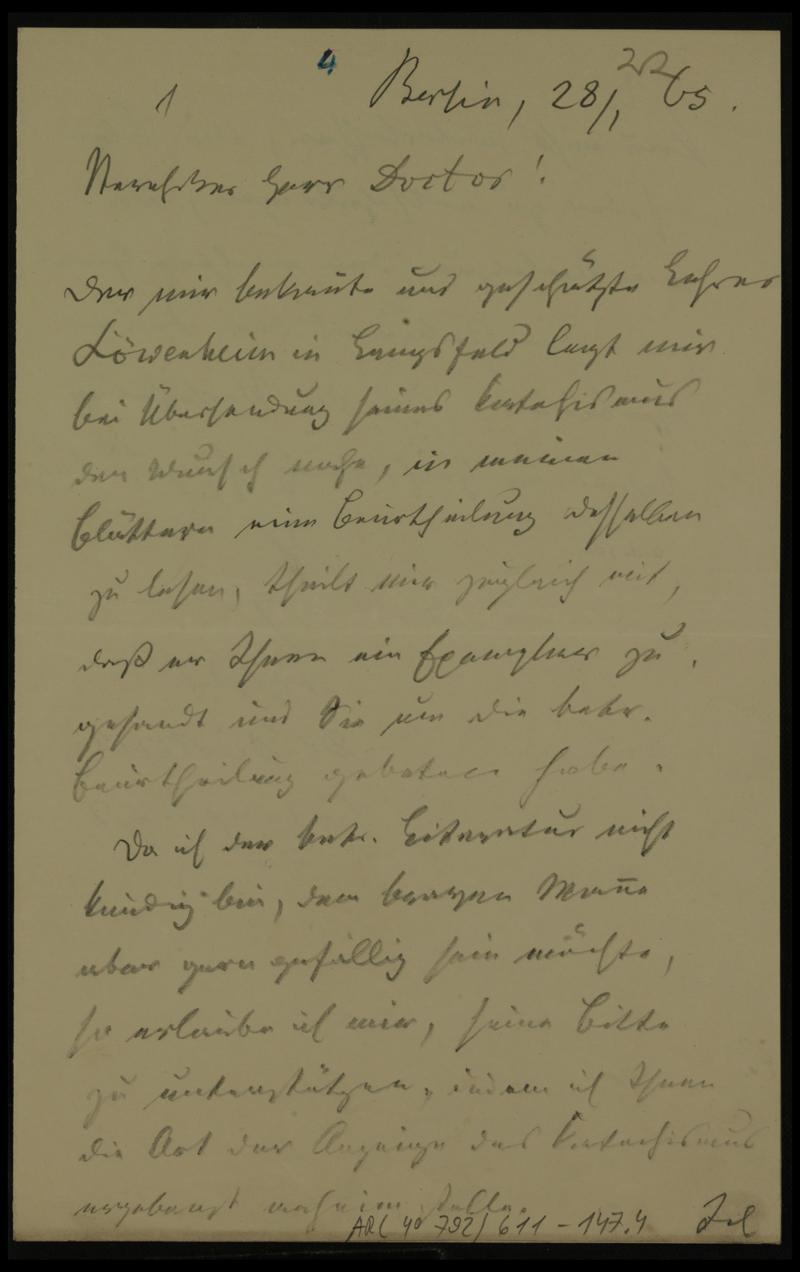 4
1 Berlin, 28/1 65.
Verehrter Herr Doctor!
Der mir bekannte und geschätzte Lehrer
Löwenheim in Lengsfeld legt mir
bei Übersendung seines Katechismus
den Wunsch nahe, in meinen
Blättern eine Beurtheilung desselben
zu lesen, theilt mir zugleich mit,
daß er Ihnen ein Exemplar zu
gesandt und Sie um die betr.
Beurtheilung gebeten habe.
Da ich der betr. Literatur nicht
kundig bin, dem braven Manne
aber gern gefällig sein möchte,
so erlaube ich mir, seine Bitte
zu unterstützen, indem ich Ihnen
die Art der Anzeige des Katechismus
ergebenst anheim stelle.
ARC 4o 792/611-147.4